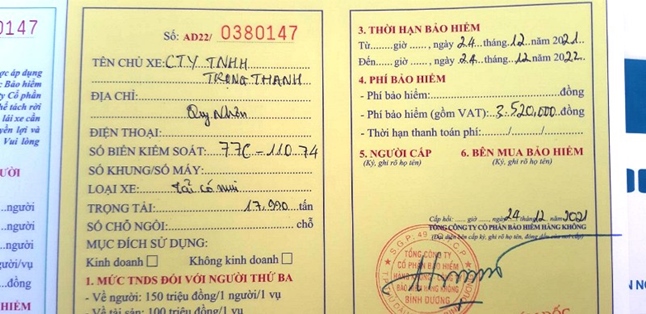 0147
Số: AD22/ 0380147
TÊN CHỦ XE: CTY TNHH
TRỌNG THANH
ĐỊA CHỈ:
Quy Nhơn
ĐIỆN THOẠI:
SỐ BIỂN KIỂM SOÁT: 77C-110.74
SỐ KHUNG/SỐ MÁY:
LOẠI XE: tải có mui
TRỌNG TẢI: 17.990 tấn
SỐ CHỖ NGỒI: chỗ
MỤC ĐÍCH SỬ DỤNG:
Kinh doanh Không kinh doanh
1. MỨC TNDS ĐỐI VỚI NGƯỜI THỨ BA
- Về người: 150 triệu đồng/1 người/1 vụ
- Về tài sản: 100 triệu đồng/1 vụ
3. THỜI HẠN BẢO HIỂM
Từ......giờ ......, ngày 24 tháng 12 năm 2021
Đến......giờ ......, ngày 24 tháng 12 năm 2022
4. PHÍ BẢO HIỂM
- Phí bảo hiểm: đồng
- Phí bảo hiểm (gồm VAT): 3.520,000 đồng
- Thời hạn thanh toán phí: / /
5. NGƯỜI CẤP 6. BÊN MUA BẢO HIỂM
(Ký, ghi rõ họ tên) (Ký, ghi rõ họ tên)
Cấp hồi: ...... giờ ......, ngày 24 / 12 / 2021
TỔNG CÔNG TY CỔ PHẦN BẢO HIỂM HÀNG KHÔNG
TỔNG CÔNG TY
CỔ PHẦN BẢO HIỂM
HÀNG KHÔNG
BẢO HIỂM HÀNG KHÔNG
BÌNH DƯƠNG
ợc áp dụng
Bảo hiểm
y Cổ phần
hể tách rời
lái xe cần
yền lợi và
Vui lòng
ƯỜI
người
người
người/vụ
người